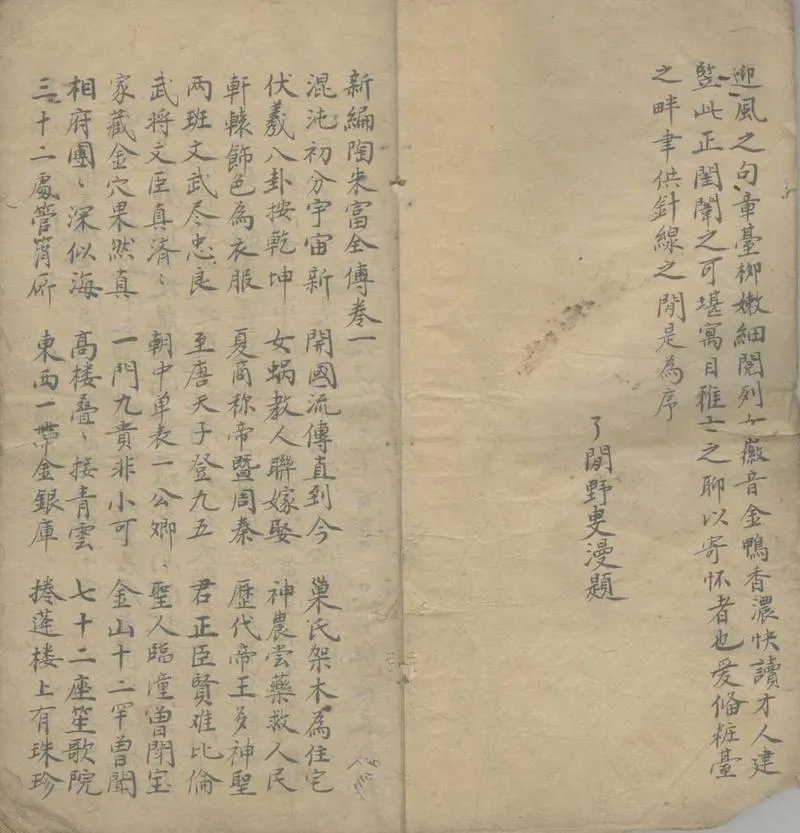 迎風之句章臺柳嫩細閱列女徽音金鴨香濃快讀才人建
竪此正閨闈之可堪寓目雅士之聊以寄怀者也爰俻粧臺
之畔聿供針線之閒是為序
了閒野叟漫題
新編陶朱富全傳卷一
混沌初分宇宙新 開國流傳直到今 巢氏架木為住宅
伏羲八卦按乾坤 女蝸教人聯嫁娶 神農尝藥救人民
軒轅飾色為衣服 夏商称帝暨周秦 歷代帝王多神聖
两班文武尽忠良 至唐天子登九五 君正臣賢难比倫
武将文臣真濟〻 朝中单表一公卿 聖人臨潼曾閗宝
家藏金穴果然真 一門九貴非小可 金山十二罕曾聞
相府團〻深似海 高楼叠〻接青雲 七十二座笙歌院
三十二處管 東西一帶金銀庫 捲蓬楼上有珠珍